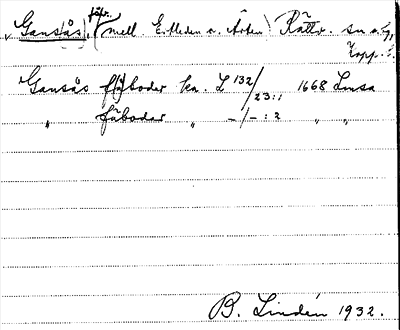 Gansås, (mell. E.-leden o. Arten) Rättv. sn
Kopp. l.
Gansås fäboder ka. L 132/23:1 1668 Lmsa
" fäbodar " -/- : 2 " "
B. Lindén 1932.